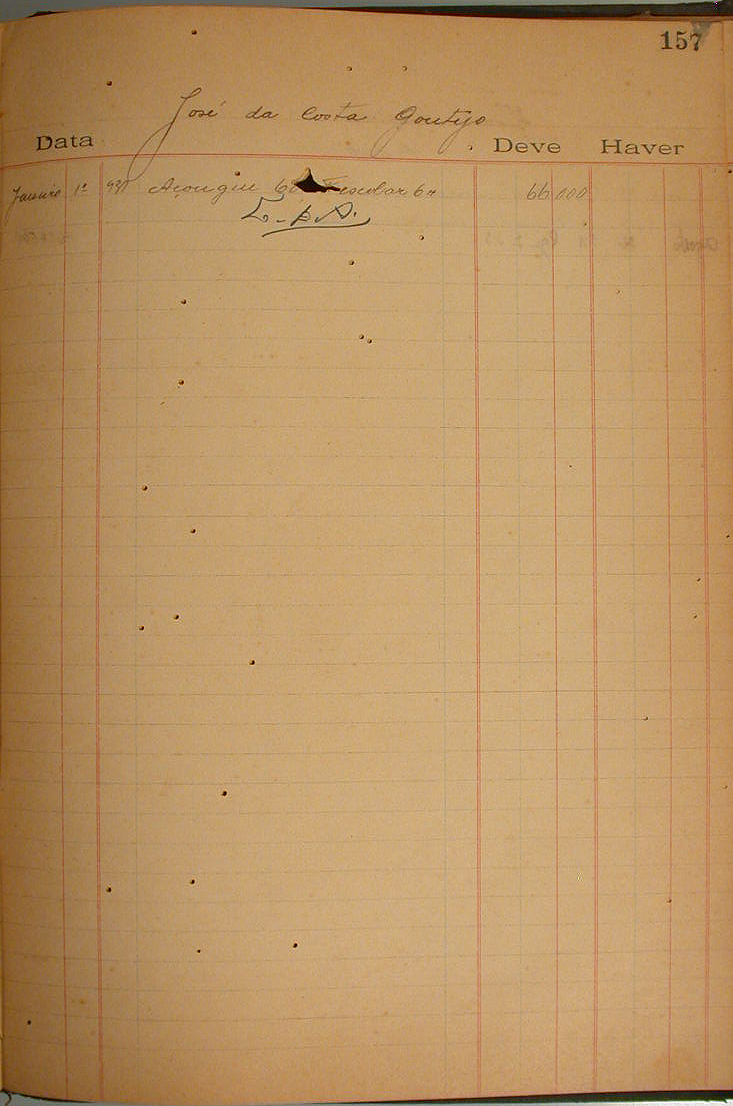 157
José da Costa Gontijo
Data Deve Haver
Janeiro 1º 931 Açougue 60 escolar 6 66,000